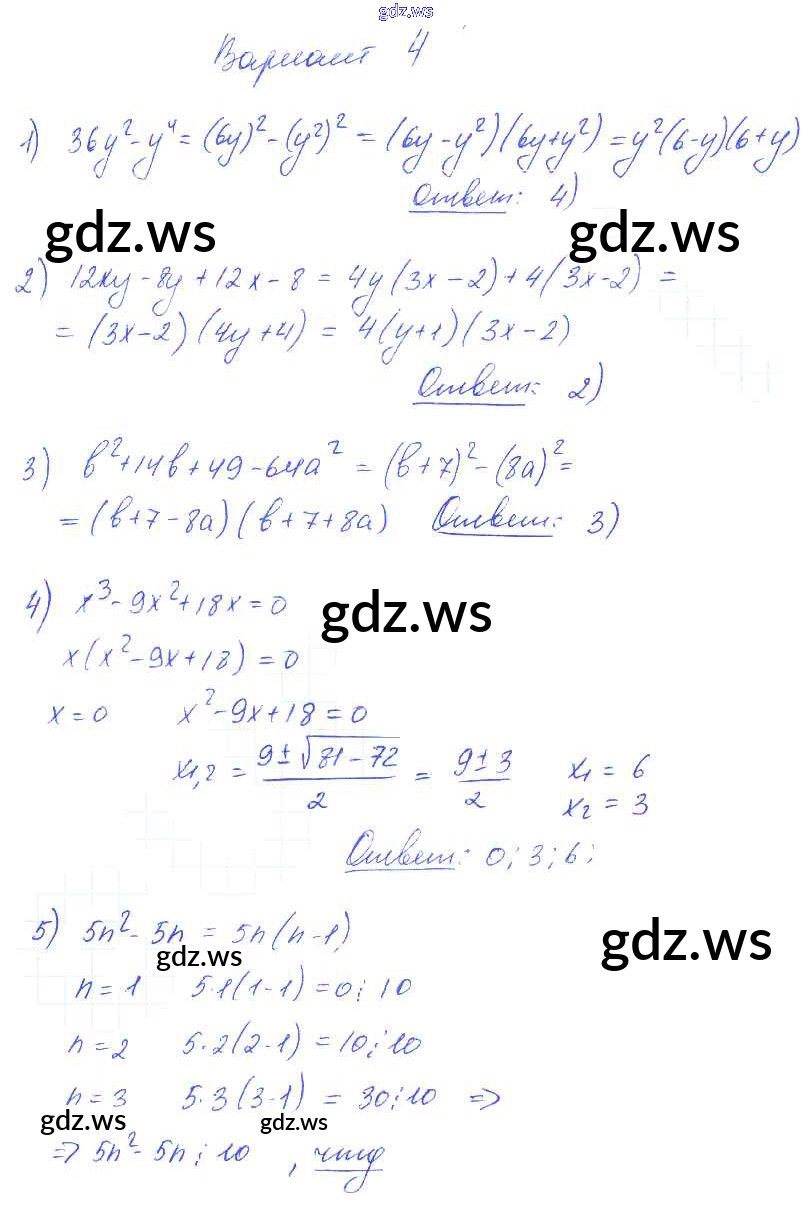 gdz.ws
Вариант 4
1) 36y² - y⁴ = (6y)² - (y²)² = (6y - y²)(6y + y²) = y²(6-y)(6+y)
Ответ: 4)
gdz.ws gdz.ws
2) 12xy - 8y + 12x - 8 = 4y(3x - 2) + 4(3x - 2) =
= (3x - 2)(4y + 4) = 4(y + 1)(3x - 2)
Ответ: 2)
3) b² + 14b + 49 - 64a² = (b + 7)² - (8a)² =
= (b + 7 - 8a)(b + 7 + 8a) Ответ: 3)
4) x³ - 9x² + 18x = 0
gdz.ws
x(x² - 9x + 18) = 0
x = 0 x² - 9x + 18 = 0
x₁,₂ = (9 ± √(81 - 72))/2 = (9 ± 3)/2 x₁ = 6
x₂ = 3
Ответ: 0; 3; 6;
5) 5n² - 5n = 5n(n - 1)
gdz.ws gdz.ws
n = 1 5·1(1 - 1) = 0 ⋮ 10
n = 2 5·2(2 - 1) = 10 ⋮ 10
n = 3 5·3(3 - 1) = 30 ⋮ 10 =>
gdz.ws gdz.ws
=> 5n² - 5n ⋮ 10, чтд